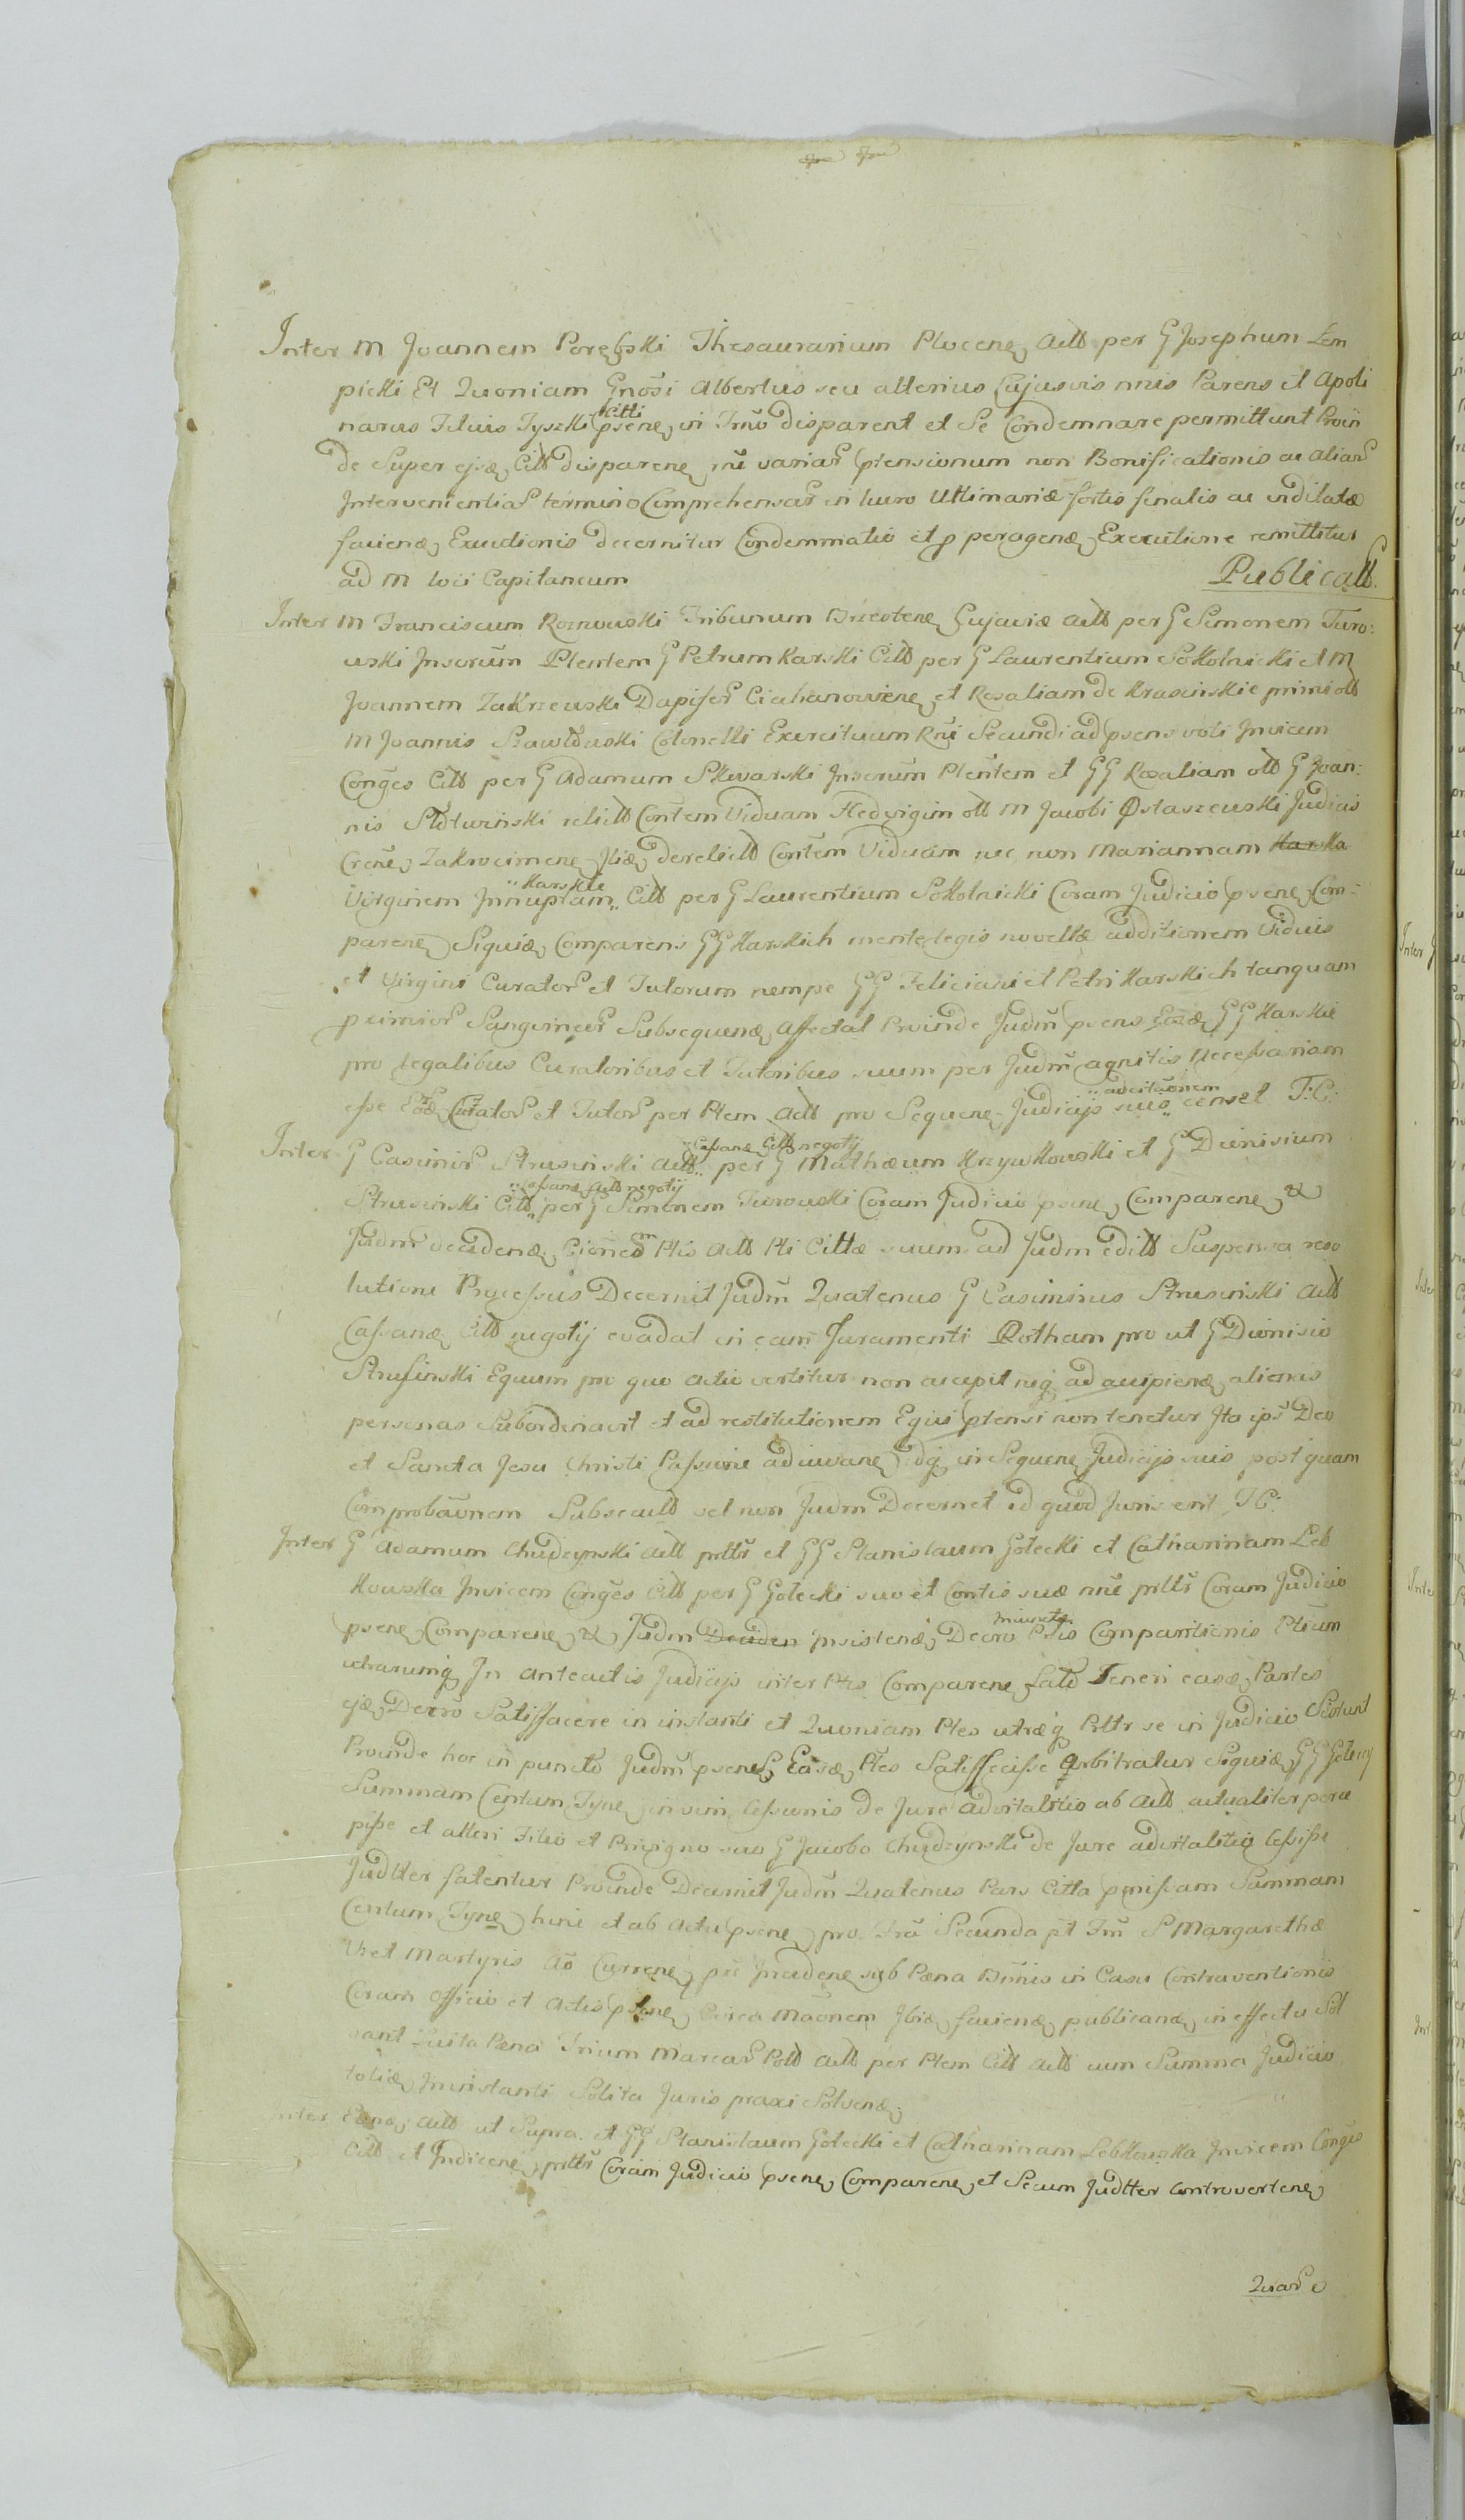 Inter M Joannem Porębski Thesaurarium Plocens Actt per G Josephum Lem
picki Et Quoniam Gnosi Albertus seu alterius Cujusvis nnis Parens et Apoli
narus Filius Tyszki Citti psens in Trno disparent et Se Condemnare permittunt Proin
de Super ejsd Citt disparen rne variar ptensionum non Bonificationis ac aliar
Intervenientiar termino Comprehensar in lucro Ultimariæ fortis finalis ac indilatæ
faciend Executionis decernitur Condemnatio et p peragend Executione remittitur
ad M loci Capitaneum Publicatt.
Inter M Franciscum Roznowski Tribunum Brzesten Cujaviæ Actt per G Simonem Turo:
wski Jnserum Plentem G Petrum Karski Citt per G Laurentium Sokolnicki et M
Joannem Zakrzewski Dapifer Ciechanoviens et Rosaliam de Krasinskie primi ott
M Joannis Szawłowski Colonelli Exercituum Rni Secundi ad psens voti Invicem
Conges Citt per G Adamum Skwarski Jnserum Plentem et GG Rosaliam ott G Joan:
nis relictt Contem Viduam Hedvigim ott M Jacobi Ostaszewski Judicis
Crens Zakrocimens Jtid derelictt Contem Viduam nec non Mariannam Karska
Virginem Innuptam Karskie Citt per G Laurentium Sokolnicki Coram Judicio psen Com:
paren Siquid Comparens GG Karskich mente legis novellæ additionem Viduis
et Virgini Curator et Tutorum nempe GG Feliciani et Petri Karskich tanquam
primior Sangvineor Subsequend Affectat Proinde Judm psens Eosd GG Karskie
pro legalibus Curatoribus et Tutoribus suum per Judm agnitis Necessariam
esse Eord Curator et Tutor per Ptem Actt pro Sequen Judicijs suis adcitationem censet T:C:
Inter G Casimir Strusinski Actt Cassand Citt negotij per G Mathæum Krzywkowski et G Dionisium
Strusinski Citt Cassand Actt negotij per G Simonem Turowski Coram Judicio psen Comparen &
Judm decidend Cionem Ptis Actt Pti Cittæ suum ad Judm editt Suspensa reso
lutione Processus Decernit Judm Quatenus G Casimirus Strusinski Actt
Cassand Citt negotij evadat in eam Juramenti Rotham pro ut G Dionisio
Strusinski Equum pro quo actio vertitur non accepit neq ad accipiend alienas
personas Subordinavit et ad restitutionem Equi ptensi non tenetur Ita ips Deo
et Sancta Jesu Christi Passione adiuvan Idq in Sequen Judicijs suis post quam
Comprobaonem Subsecutt vel non Judm Decernet id quod Juris erit T C:
Inter G Adamum Chudzynski Actt prltr et GG Stanislaum Gołecki et Catharinam Leb
kowska Invicem Conges Citt per G Gołecki suo et Contis suæ nne prltr Coram Judicio
psen Comparen & Judm Deciden Insistend Decro Ptis minute Comparitionis Ptium
utrarumq In anteactis Judicijs inter Ptes Comparen Lato Teneri easd Partes
ejsd Decro Satisfacere in instanti et Quoniam Ptes utræq Prltr se in Judicio Sistunt
Proinde hoc in puncto Judm psens Easd Ptes Satisfecisse Arbitratur Siquid GG
Summam Centum Tyn in vim Cessionis de Jure advitalitio ab Actt actualiter perce
pisse et alteri Filio et Privigno suo G Jacobo Chudzynski de Jure advitalitio Cessisse
Judtter fatentur Proinde Decernit Judm Quatenus Pars Citta pmissam Summam
Centum Tyn hinc et ab actu psen pro Fra Secunda pt Fm S Margarethæ
V et Martyris Ao Curren pxe Inciden sub Pœna Bnnis in Casu Contraventionis
Coram Officio et Actis psen Circa Maonem Jbid faciend publicand in effectu Sol
vant Luita Pœna Trium Marcar Poll Actt per Ptem Citt Actt cum Summa Judicio
totid Ininstanti Solita Juris praxi Solvend
Inter Eund Actt ut Supra et GG Stanislaum Gołecki et Catharinam Lebkowska Invicem Conges
Citt et Indicen prltr Coram Judicio psen Comparen et Secum Judtter Controverten
Quar